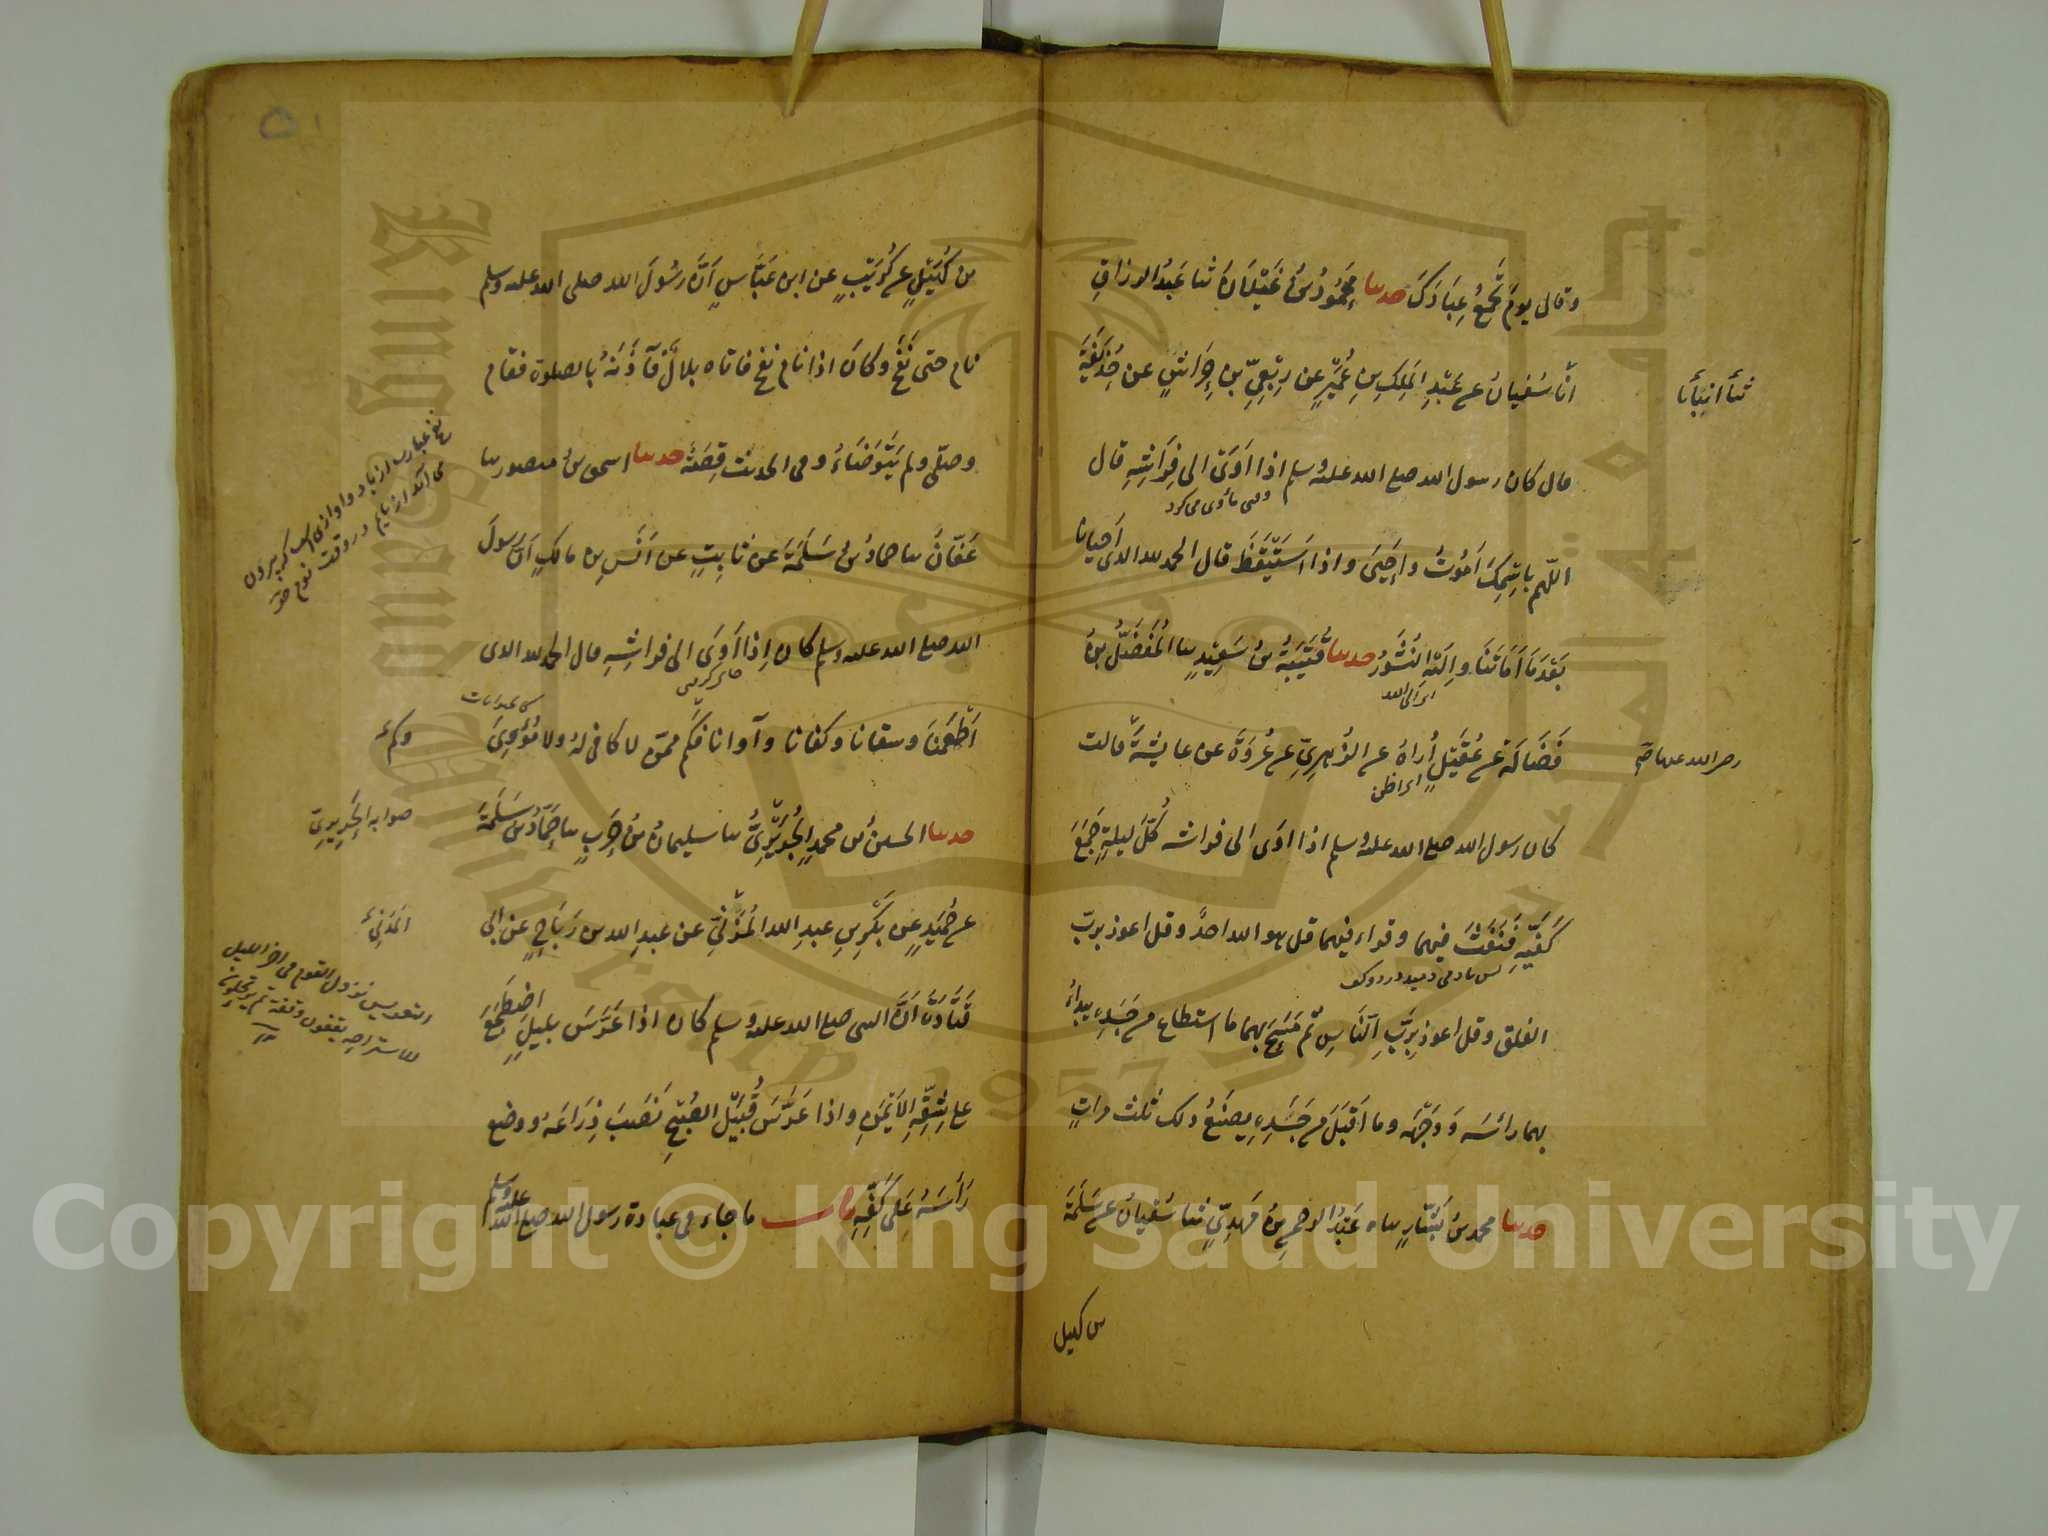 وقال يوم تَجمَعُ عِبَادَكَ حدسا مَحمُودُ بنُ غَيْلَانَ ثنا عَبدُ الرزاقِ
انَا سُفيانُ عن عَبْدِ المَلِكِ بنِ عُمَيْرٍ عن رِبْعِيِّ بنِ حِرَاشٍ عن حُذَيفَةَ
ثنأ انبأنا
قال كان رسول الله صلع الله علىه وسلم اذا اَوَى الى فِرَاشِهِ قال
اللّهم بِاسْمِكَ اَمُوتُ واَحيَى واذا اسْتَيْقَظَ قال الحمد لله الذى اَحيانا
بَعْدَمَا اَمَاتَنَا واِلَيْهِ النُشُورُ حدسا قُتَيْبَةُ بنُ سَعِيدٍ سا المُفَضَّلُ بنُ
اى الى الله
فَضَالَةَ عن عُقَيْلٍ اُراهُ عن الزُهرِيِّ عن عُرْوَةَ عن عايشةَ قالت
اى اظن
كان رسول الله صلع الله علىه وسلم اذا اوَى الى فراشه كُلَّ ليلةٍ جَمَعَ
كَفَّيْهِ فَنَفَثَ فيهما وقراء فيهما قل هو الله احدٌ وقل اعوذ بربّ
الفلق وقل اعوذ بِرَبِّ النَّاسِ ثم مَسَحَ بهما ما استطاع من جَسَدِهِ يبداُ
بهما رائسَه وَوَجْهَه وما اَقْبَلَ من جَسَدِهِ يصنَعُ ذلك ثلث مراتٍ
حدسا محمد بنُ بَشَّارٍ سا عَبْدُ الرحمنِ بنُ مَهدِيٍّ ثنا سُفيانُ عن سَلَمَةَ
بن كهيل
٥١
بن كُهَيْلٍ عن كُرَيْبٍ عن ابن عَبَّاسٍ اَنَّ رسُولَ الله صلى الله علىه وسلم
نام حتى نَفَخَ وكانَ اذا نام نفخ فاتاه بلالٌ فآذَنَهُ بالصلوة فقام
وصلّى ولم يَتَوَضَّاءُ وفى الحديث قِصَّةٌ حدسا اسحق بنُ منصور سا
عَفّانُ سا حمادُ بنُ سَلَمَةَ عن ثَابِتٍ عن اَنَسِ بن مالكٍ اَنَّ رسولَ
الله صلع الله علىه وسلم كان اِذا اَوَى الى فراشِهِ قال الحمد لله الذى
اَطْعَمَنَا وسقانا وكفانا وآوانا فكَم ممّن لا كافىَ لهُ ولا مُؤْوِىَ
حدسا الحسن بنُ محمدٍ الجُرَيْرِىُّ سا سليمانُ بنُ حَربٍ سا حَمّادُ بنُ سَلَمَةَ
صوابه الجَرِيرِىّ
عن حُمَيْدٍ عن بَكْرِ بنِ عبدِ الله المُزَنِّيِ عن عبدِ الله بن رَبَاحٍ عن ابى
المَدَنِىّ
قَتَادَةَ اَنَّ النبى صلع الله علىه وسلم كان اذا عَرَّسَ بليلٍ اضْطَجَعَ
التعريس نزول القوم فى اخر الليل
على شِقِّهِ الاَيْمَنِ واذا عَرَّسَ قُبَيْلَ الصُبْحِ نَصَبَ ذِرَاعَهُ ووضع
رَأسَهُ عَلى كَفِّهِ باب ما جاء فى عبادة رسول الله صلع الله علىه وسلم
Copyright © King Saud University